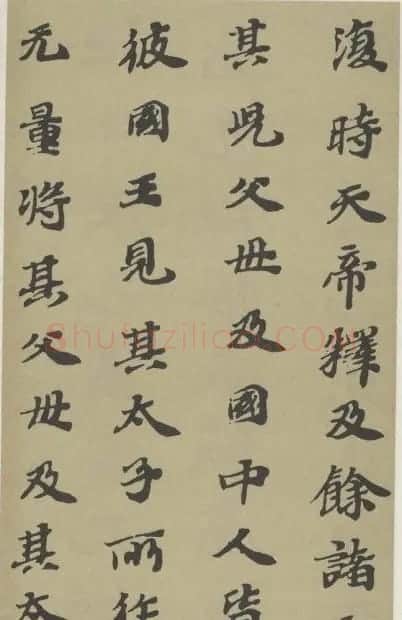 復時天帝釋及餘諸
其児父母及國中人皆
彼國王見其太子所作
无量将其父母及其太
Shufaziliao.COM